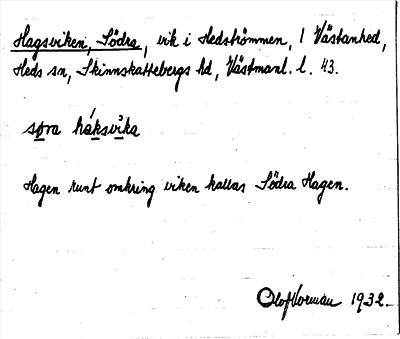 Hagsviken, Södra, vik i Hedströmmen, l Västanhed,
Heds sn, Skinnskattebergs hd, Västmanl. l. 43.
søra háksvika
Hagen runt omkring viken kallas Södra Hagen.
Olof Vorman 1932.